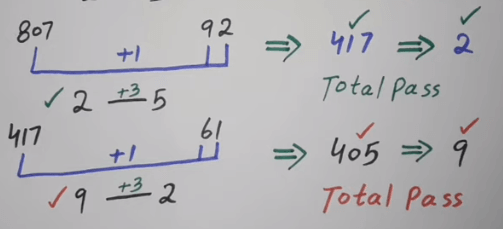 807 92 ⇒ 417 ⇒ 2
+1
✓ 2 +3 5 Total Pass
417 61 ⇒ 405 ⇒ 9
+1
✓ 9 +3 2 Total Pass